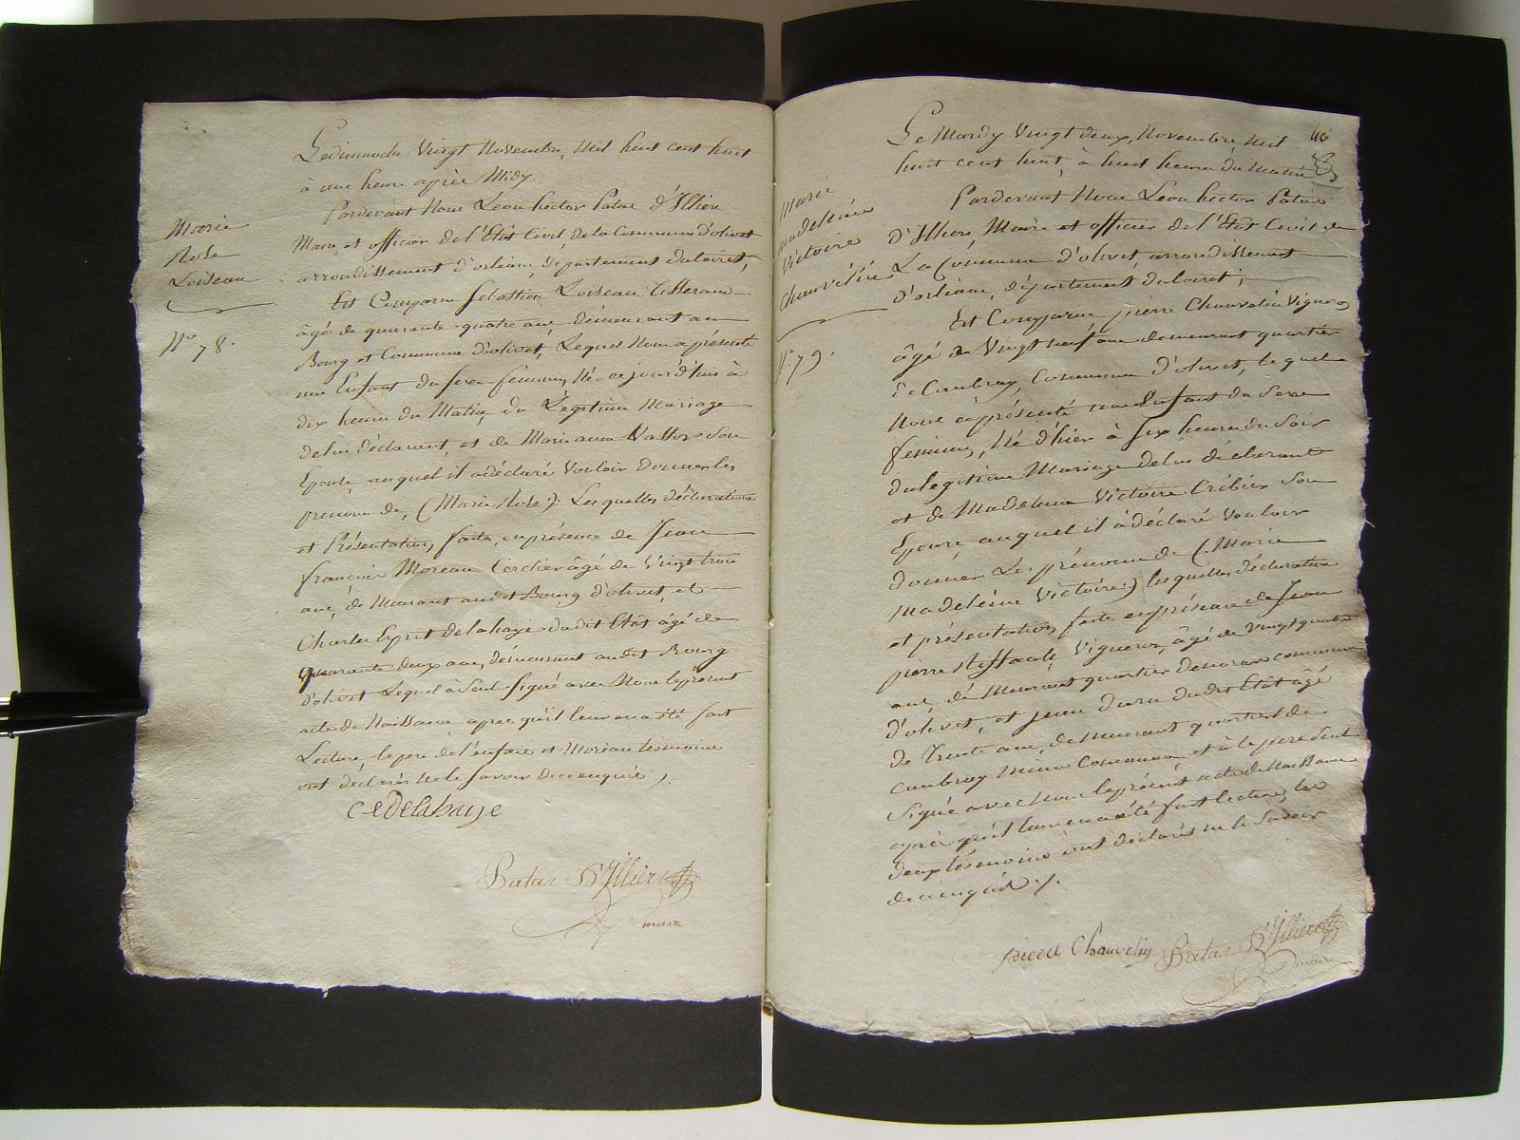 Marie
Rose
Loiseau
No 78.
Le dimanche Vingt Novembre, Mil huit cent huit
à une heure après Midy.
Pardevant Nous Léon hector Patas d'Illiers
Maire et officier de l'Etat Civil, de la Commune d'olivet
arrondissement d'orléans, département du loiret,
Est Comparu Sebastien Loiseau tisserand
âgé de quarante quatre ans, demeurant au
Bourg et Commune d'olivet, Lequel Nous a présenté
une Enfant du sexe féminin, Née ce jourd'hui à
dix heures du Matin, du Légitime Mariage
de lui déclarant, et de Marianne Vallos son
Epouse, auquel il a déclaré Vouloir donner les
prenoms de, (Marie Rose). Lesquelles déclaration
et Présentation, faite, en présence de Jean
françois Moreau Cerclier âgé de Vingt trois
ans, demeurant audit Bourg d'olivet, et
Charles Esprit delahaye dudit Etat âgé de
quarante deux ans, demeurant audit Bourg
d'olivet Lequel a seul signé avec Nous le présent
acte de Naissance après qu'il leur en a été fait
Lecture, le pere de l'enfant et Moreau temoins
ont déclarés ne le savoir de ce enquis ,.
C e Delahaye
Patas D'Illiers
maire
40
Marie
madeleine
Victoire
Chauvelin
No 79.
Le Mardy Vingt deux, Novembre, Mil
huit cent huit, à huit heures du Matin
Pardevant Nous Léon hector Patas
D'Illiers, Maire et officier de l'Etat Civil de
La Commune d'olivet arrondissement
d'orléans, département du loiret ;
Est Comparu pierre Chauvelin Vigneron
âgé de Vingt neuf ans demeurant quartier
de Caubray, Commune d'olivet, lequel
Nous à présenté une Enfant du sexe
féminin, Née d'hier à six heures du Soir
du légitime Mariage de lui déclarant
et de Madeleine Victoire Cribier son
Epouse auquel il à déclaré Vouloir
donner Les prénoms de (Marie
Madeleine Victoire) lesquelles déclaration
et présentation, faite en présence de Jean
pierre Vigneron, âgé de Vingt quatre
ans, demeurant quartier commune
d'olivet, et jean dudit Etat âgé
de Trente ans, demeurant quartier de
Caubray même Commune et à le pere Seul
Signé avec Nous le présent acte de Naissance
après qu'il leur en a été fait lecture, les
deux témoins ont déclarés ne le Savoir
de ce enquis ,.
pierre Chauvelin Patas D'Illiers
maire